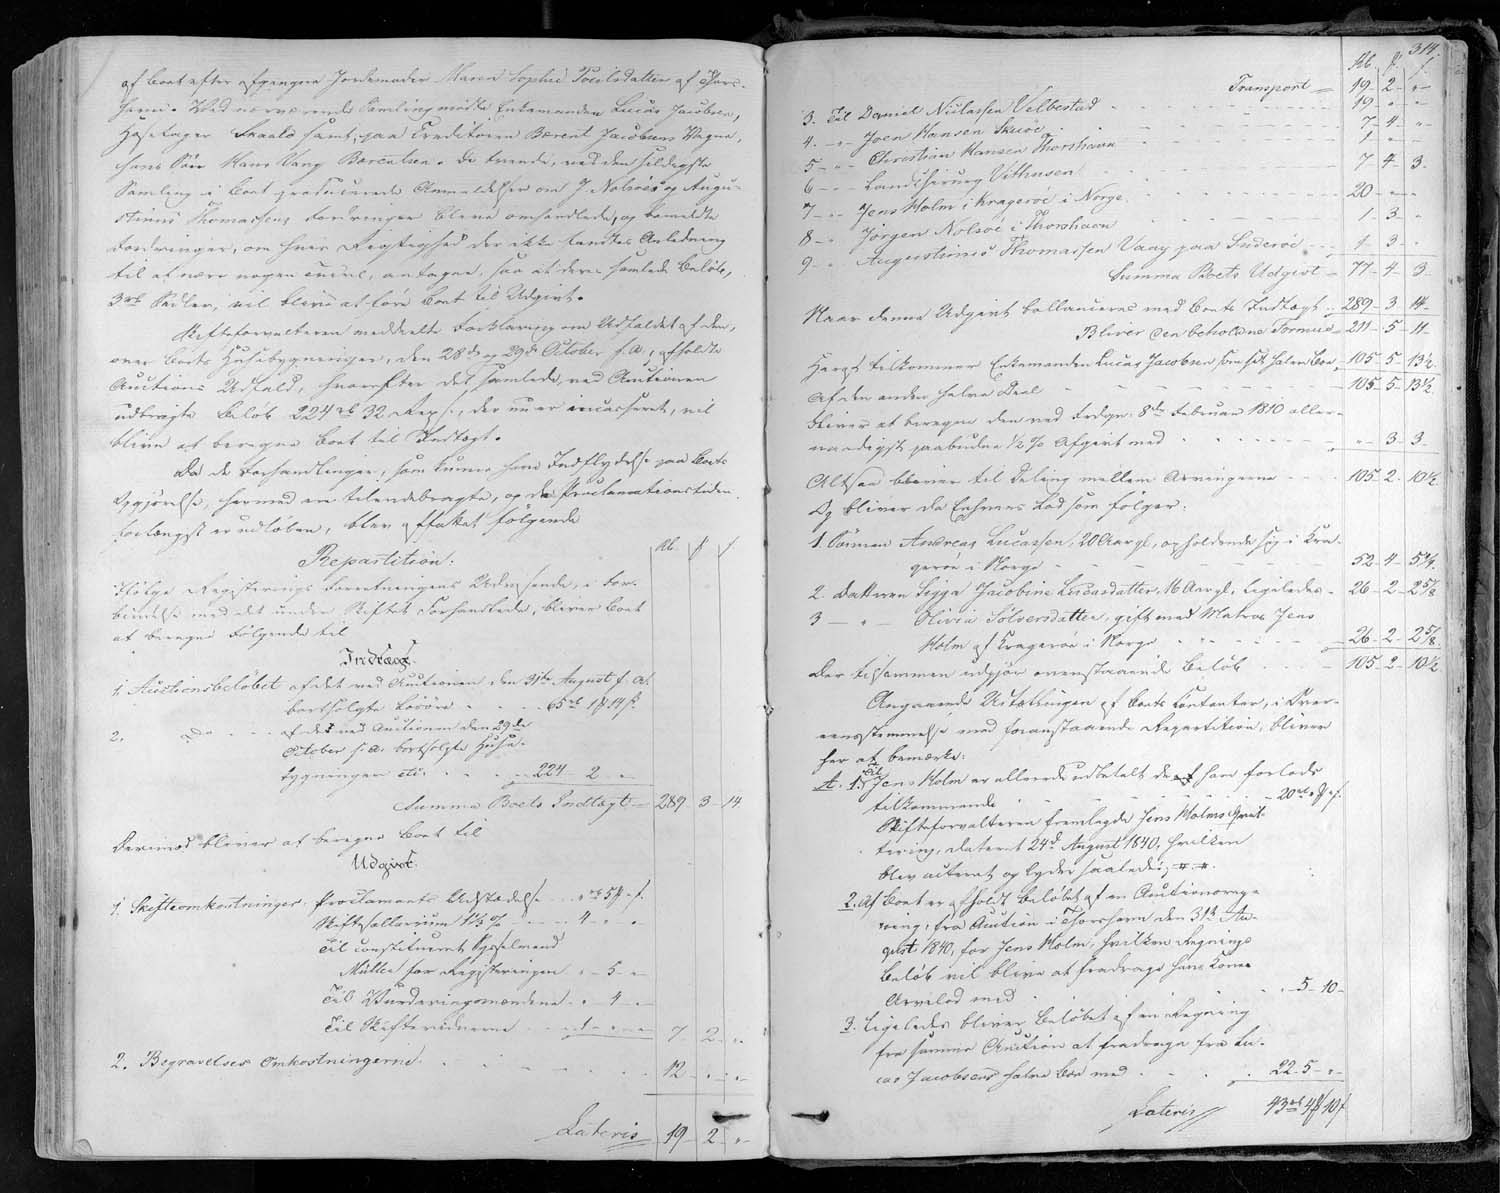 af Boet efter afgangne Jordemoder Maren Sophie Poulsdatter af Thors-
havn. Ved nærværende Samling mødte Enkemanden Lucas Jacobsen,
Huusetager Skaalö samt, paa Creditoren Berent Jacobsens Vegne,
hans Søn Hans Vang Berentsen. De tvende, ved den sidste
Samling i Boet producerede Anmeldelser om J. Nolsöes og Augu-
stinus Thomassens Fordringer bleve omhandlede, og bemeldte
Fordringer, om hvis Rigtighed der ikke fandtes Anledning
til at nære nogen Tvivl, antagne, saa at deres samlede Beløb,
3 rb Sedler, vil blive at føre Boet til Udgivt.
Skifteforvalteren meddeelte Forklaring om Udfaldet af den,
over Boets Huusebygninger, den 28de og 29de October f. A., afholdte
Auctions Udfald, hvorefter det samlede, ved Auctionen
udbragte Beløb 224 rb 32, der nu er incasseret, vil
blive at beregne Boet til Indtægt.
Da de Forhandlinger, som kunne have Indflydelse paa Boets
Opgjørelse, hermed ere tilendebragte, og da Proclamationstiden
forlængst er udløben, blev affattet følgende
Repartition.
Rb. ß
Ifølge Registerings Forretningens Udvisende, i For-
bindelse med det under Skiftet Forhandlede, bliver Boet
at beregne følgende til
Indtægt.
1. Auctionsbeløbet af det ved Auctionen den 31te August f. A.
bortsolgte Løsøre 65 rb 1 14
2. do af det ved Auctionen den 29de
October f. A. bortsolgte Huse-
bygninger etc. 224 - 2 - "
Summa Boets Indtægt 289 - 3 - 14
Derimod bliver at beregne Boet til
Udgivt.
1. Skifteomkostninger. Proclamants Udstædelse " rb 5
Skiftesallarium 1 1/3 % 4 - " - "
Til constitueret Sysselmand
Müller for Registeringen " - 5 - "
Til Vurderingsmændene " - 4 - "
Til Skiftevidnerne 1 - " - " 7 - 2 - "
2. Begravelses Omkostningerne 12 - " - "
Lateris 19 - 2 - "
314.
Rb. ß
Transport 19 - 2 - "
3. Til Daniel Niclassen Velbestad 19 " "
4. - " Joen Hansen Skuöe 7 - 4 - "
5 - - " Christian Hansen Thorshavn 1 - " - "
6 - - " Landchirurg Vithusen 7 - 4 - 3
7 - - " Jens Holm i Kragerøe i Norge 20 - " - "
8 - " Jörgen Nolsöe i Thorshavn 1 - 3 - "
9 - " Augustinus Thomassen Vaag paa Suderöe 1 - 3 - "
Summa Boets Udgivt 77 - 4 - 3
Naar denne Udgivt ballanceres med Boets Indtægt 289 - 3 - 14
Bliver den beholdne Formue 211 - 5 - 11
Heraf tilkommer Enkemanden Lucas Jacobsen som sit halve Boe 105 - 5 - 13 1/2
Af den anden halve Deel 105 - 5 - 13 1/2
bliver at beregne den ved Frdgn. 8de Februar 1810 aller-
naadigst paabudne 1/2 % Afgivt med " - 3 - 3
Altsaa bliver til Deling mellem Arvingerne 105 - 2 - 10 1/2
Og bliver da Enhvers Lod som følger:
1. Sønnen Andreas Lucassen, 20 Aar gl., opholdende sig i Kra-
gerøe i Norge 52 - 4 - 5 1/4
2. Datteren Sigga Jacobine Lucasdatter, 16 Aar gl., ligeledes 26 - 2 - 2 5/8
3 - " - Olivia Sölversdatter, gift med Matros Jens
Holm af Kragerøe i Norge 26 - 2 - 2 5/8
Der tilsammen udgjør ovenstaaende Beløb 105 - 2 - 10 1/2
Angaaende Udtællingen af Boets Contanter, i Over-
eensstemmelse med foranstaaende Repartition, bliver
her at bemærke:
A. 1. Til Jens Holm er allerede udbetalt det ham forlods
tilkommende 20 rb " "
Skifteforvalteren fremlagde Jens Holms Qvit-
tering, dateret 24de August 1840, hvilken
blev acteret og lyder saaledes, " "
2. Af Boet er afholdt Beløbet af en Auctionsreg-
ning, fra Auction i Thorshavn den 31te Au-
gust 1840, for Jens Holm, hvilken Regnings
Beløb vil blive at fradrage hans Kones
Arvelod med " - 5 - 10
3. Ligeledes bliver Beløbet af en Regning
fra samme Auction at fradrage fra Lu-
cas Jacobsens halve Boe med 22 - 5 - "
Lateris 43 rb 4 10